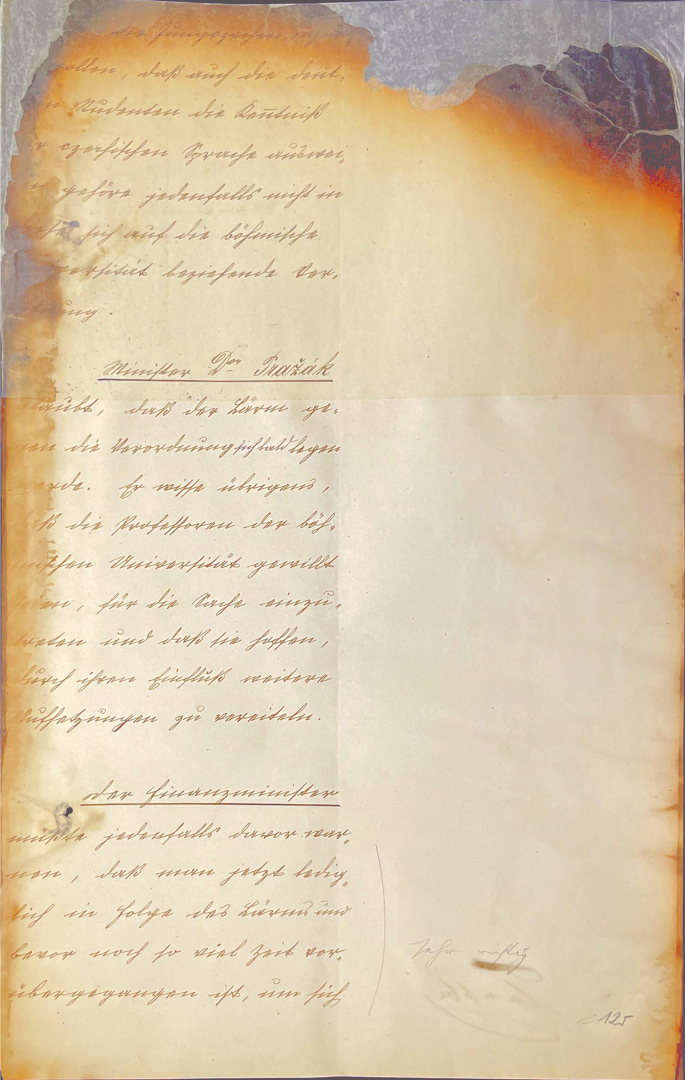 die Jungczechen
wollen, daß auch die deut-
n Studenten die Kenntniß
r czechischen Sprache auswei-
gehöre jedenfalls nicht in
sich auf die böhmische
versität beziehende Ver-
ung.
Minister Dr Pražák
laubt, daß der Lärm ge-
gen die Verordnung sich bald legen
erde. Er wisse übrigens,
ß die Professoren der böh-
mischen Universität gewillt
eien, für die Sache einzu-
treten und daß sie hoffen,
durch ihren Einfluß weitere
Aufhetzungen zu vereiteln.
Der Finanzminister
müßte jedenfalls davor war-
nen, daß man jetzt ledig-
lich in Folge des Lärms und
bevor noch so viel Zeit vor-
übergegangen ist, um sich
Sehr richtig
125